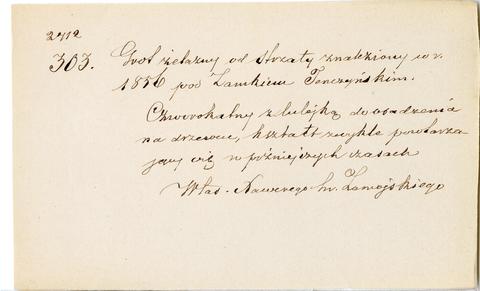 2412
303. Grot żelazny od strzały znaleziony w r.
1856 pod Zamkiem Tenczyńskim.
Czworokatny z lulejką do osadzenia
na drzewcu, kształt zwykle powtarza-
jący się w późniejszych czasach
Włas. Xawerego hr. Zamojskiego